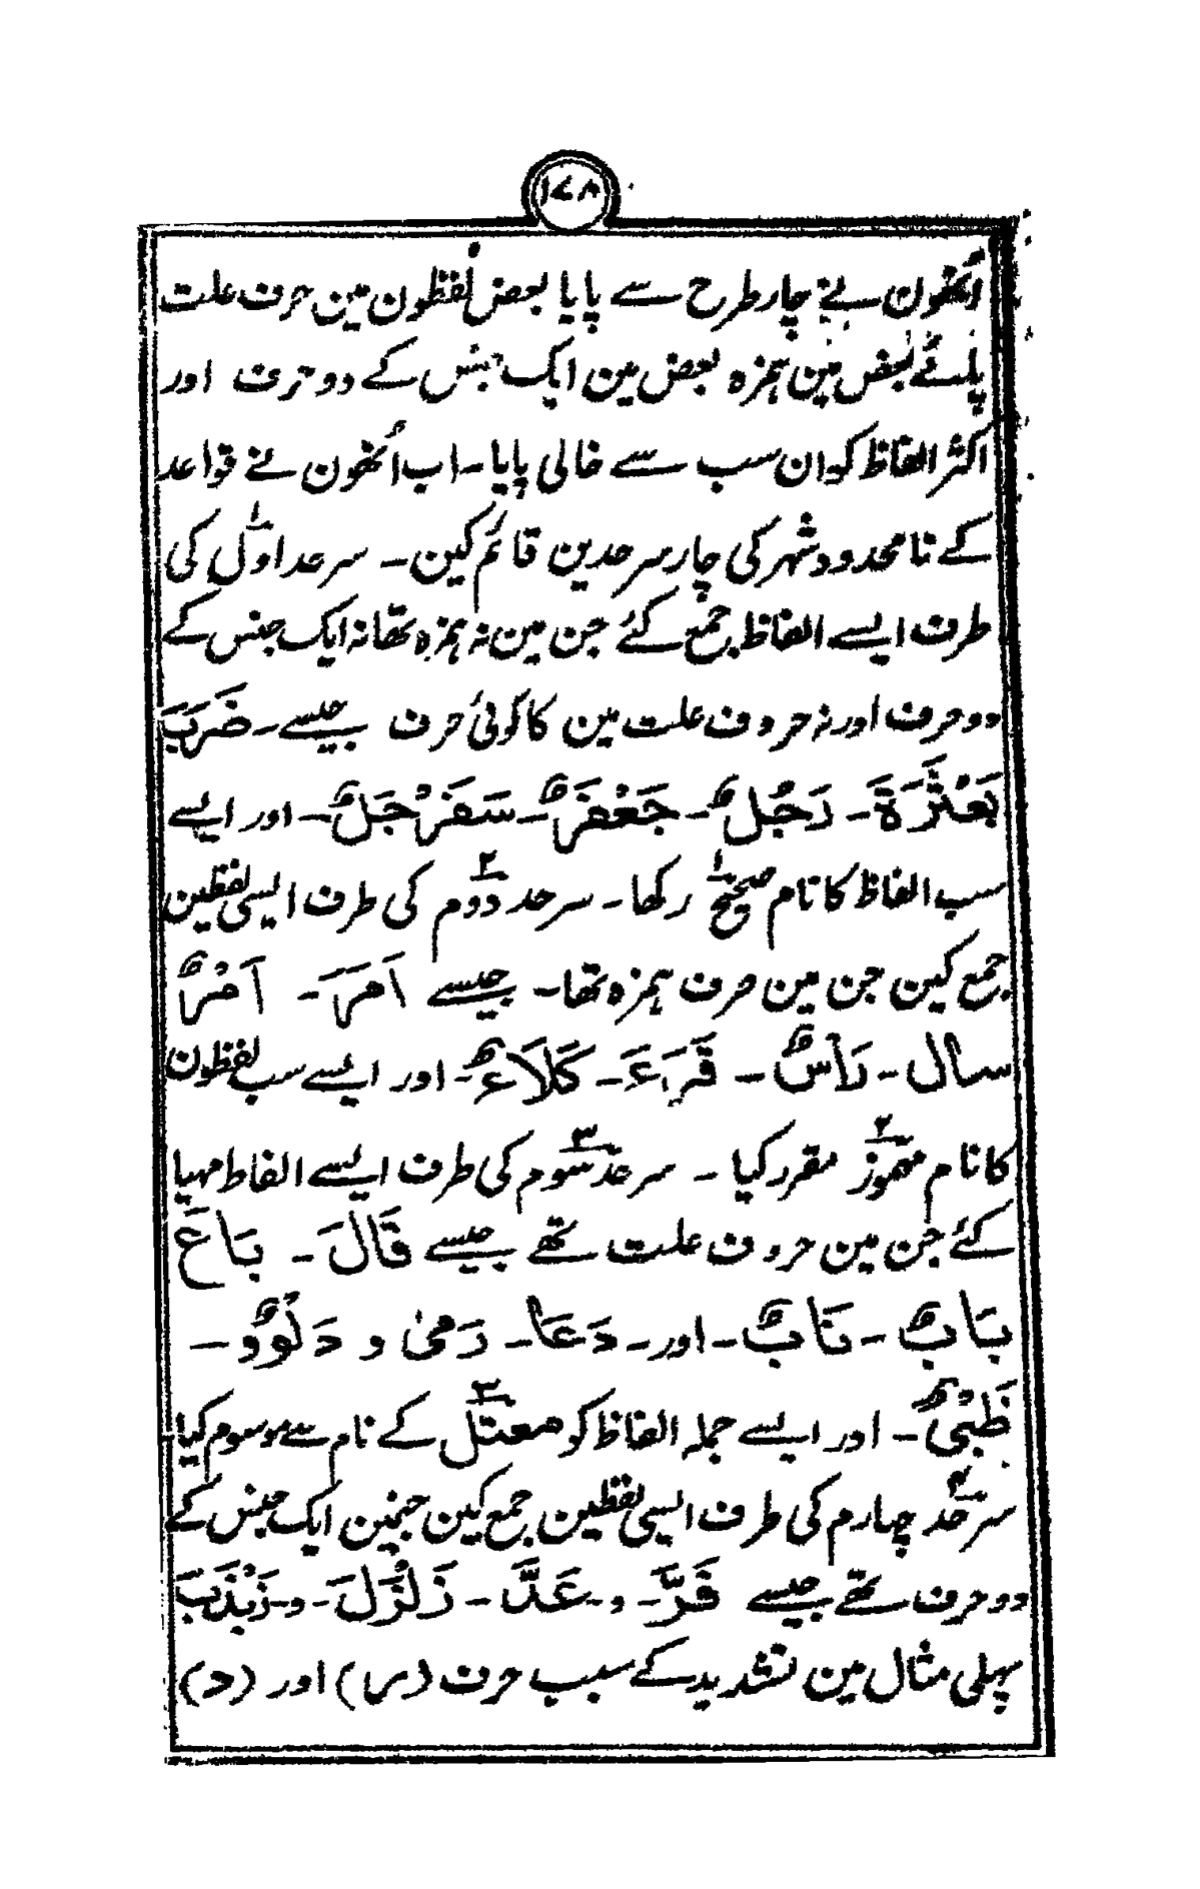 ۱۷۸
اُنھون نے چار طرح سے پایا بعض لفظون مین حرف علت
پائے بعض مین ہمزہ بعض مین ایک جنس کے دو حرف اور
اکثر الفاظ کو ان سب سے خالی پایا۔ اب اُنھون نے قواعد
کے نامحدود شہر کی چار سرحدین قائم کین۔ سرحد اوّل کی
طرف ایسے الفاظ جمع کئے جن مین نہ ہمزہ تھا نہ ایک جنس کے
دو حرف اور نہ حروف علت مین کا کوئی حرف جیسے۔ ضَرَبَ
بَعْثَرَةَ۔ رَجُلٌ۔ جَعْفَرٌ۔ سَفَرْجَلٌ۔ اور ایسے
سب الفاظ کا نام صحیح رکھا۔ سرحد دوم کی طرف ایسی لفظین
جمع کین جن مین حرف ہمزہ تھا۔ جیسے اَمَرَ۔ اَمْرٌ
سال۔ رَاْسٌ۔ قَرَءَ۔ كَلَاءٌ۔ اور ایسے سب لفظون
کا نام مہموز مقرر کیا۔ سرحد سوم کی طرف ایسے الفاظ مہیا
کئے جن مین حروف علت تھے جیسے قَالَ۔ بَاعَ
بَابٌ۔ نَابٌ۔ اور۔ دَعَا۔ رَمیٰ و دَلْوٌ و۔
ظَبْیٌ۔ اور ایسے جملہ الفاظ کو معتل کے نام سے موسوم کیا
سرحد چہارم کی طرف ایسی لفظین جمع کین جنمین ایک جنس کے
دو حرف تھے جیسے فَرَّ۔ و۔ عَدَّ۔ زَلْزَلَ۔ و۔ ذَبْذَبَ
پہلی مثال مین تشدید کے سبب حرف (ر) اور (د)